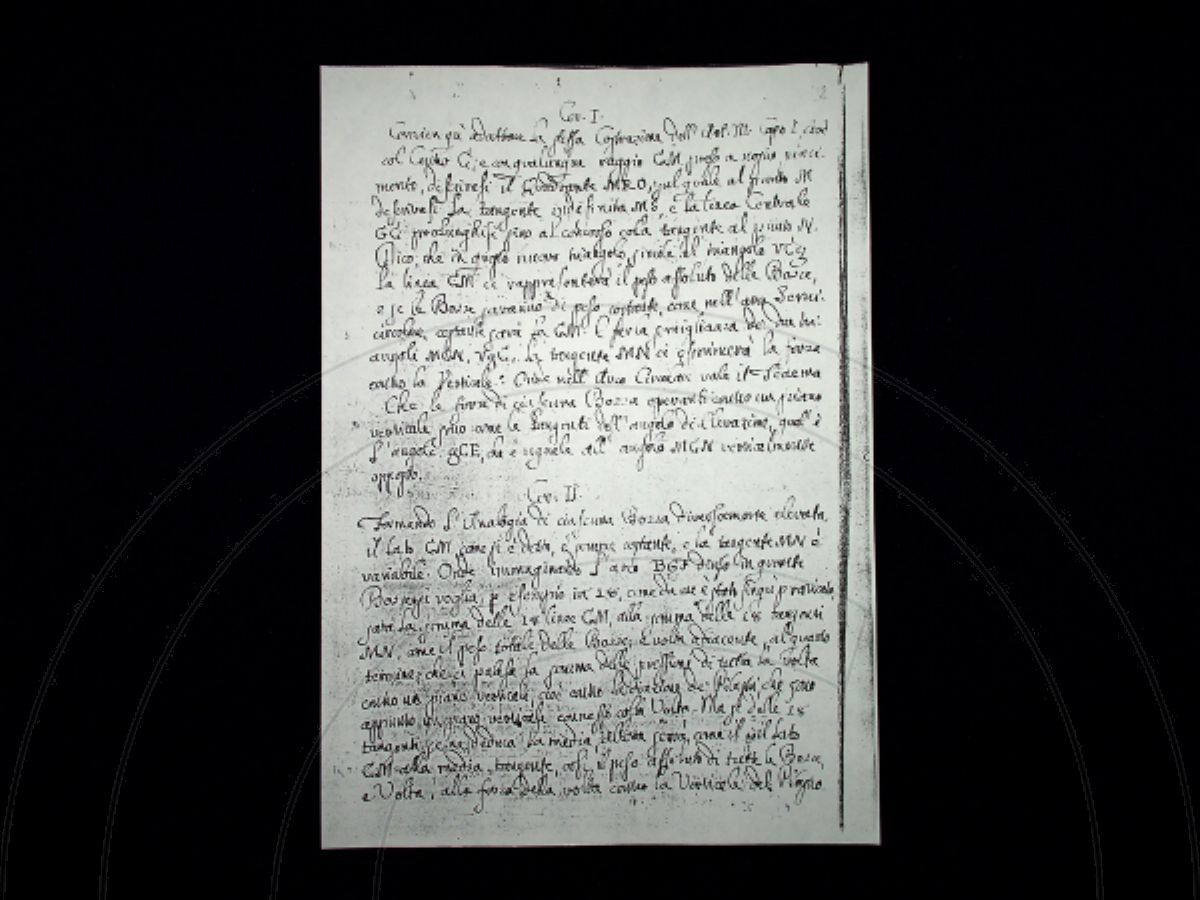 2
Cor. I.
Convien quì adattare la stessa Costruzione dell' Art. III. Capo I, cioè
col Centro C, e con qualunque raggio CM preso a nostro piaci-
mento, descrivesi il Quadrante MRO, sul quale al punto M
descrivesi la tangente indefinita MS, e la linea Centrale
GC prolunghisi sino al concorso cola tangente al punto N.
Dico, che in questo nuovo triangolo, simile al triangolo
la linea CM ci rappresenterà il peso assoluto delle Bozze,
e se le Bozze saranno di peso costante, come nell'
circolare, costante sarà la CM. E per la somiglianza de' due tri-
angoli MCN, la tangente MN ci esprimerà la forza
contro la Verticale. Onde nell' Arco Circolare vale il
Che le forze di ciascuna Bozza operanti contro un piano
verticale sono come le tangenti dell' angolo di elevazione, qual' è
l' angolo gCE, che è uguale all' angolo MCN verticalmente
opposto.
Cor. II.
Formando l' Analogia di ciascuna Bozza diversamente elevata,
il lato CM, come si è detto, è sempre costante, e la tangente MN è
variabile. Onde immaginando l' arco BGF diviso in quante
Bozze si voglia, p. esempio in 28, come da me è stato quì praticato,
sarà la somma delle 28 linee CM, alla somma delle 28 tangenti
MN, come il peso totale delle Bozze, e volta al quarto
termine, che ci palesa la somma delle pressioni di tutta la volta
contro un piano verticale, cioè contro la direzione de' Pilastri, che sono
appunto un piano verticale connesso colla Volta. Ma se dalle 28
tangenti se ne deduca la media, allora sarà, come il lato
CM alla media tangente, così il peso assoluto di tutte le Bozze,
e Volta, alla forza della volta contro la Verticale del